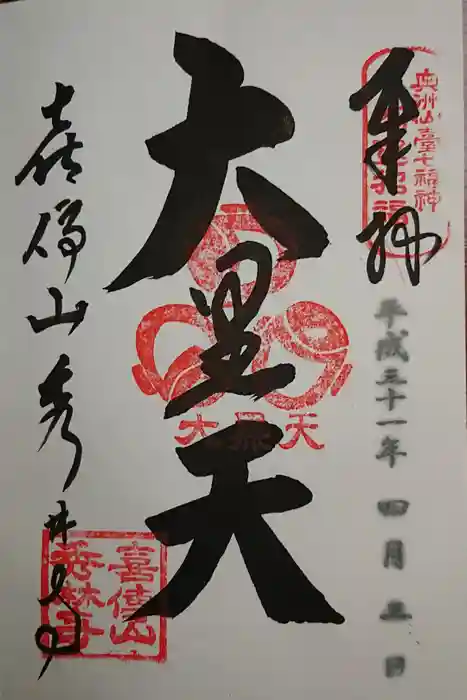 奉拝
奥州仙臺七福神
平成三十一年 四月三日
大黒天
大黒天
喜傳山秀林寺
喜傳山
秀林寺